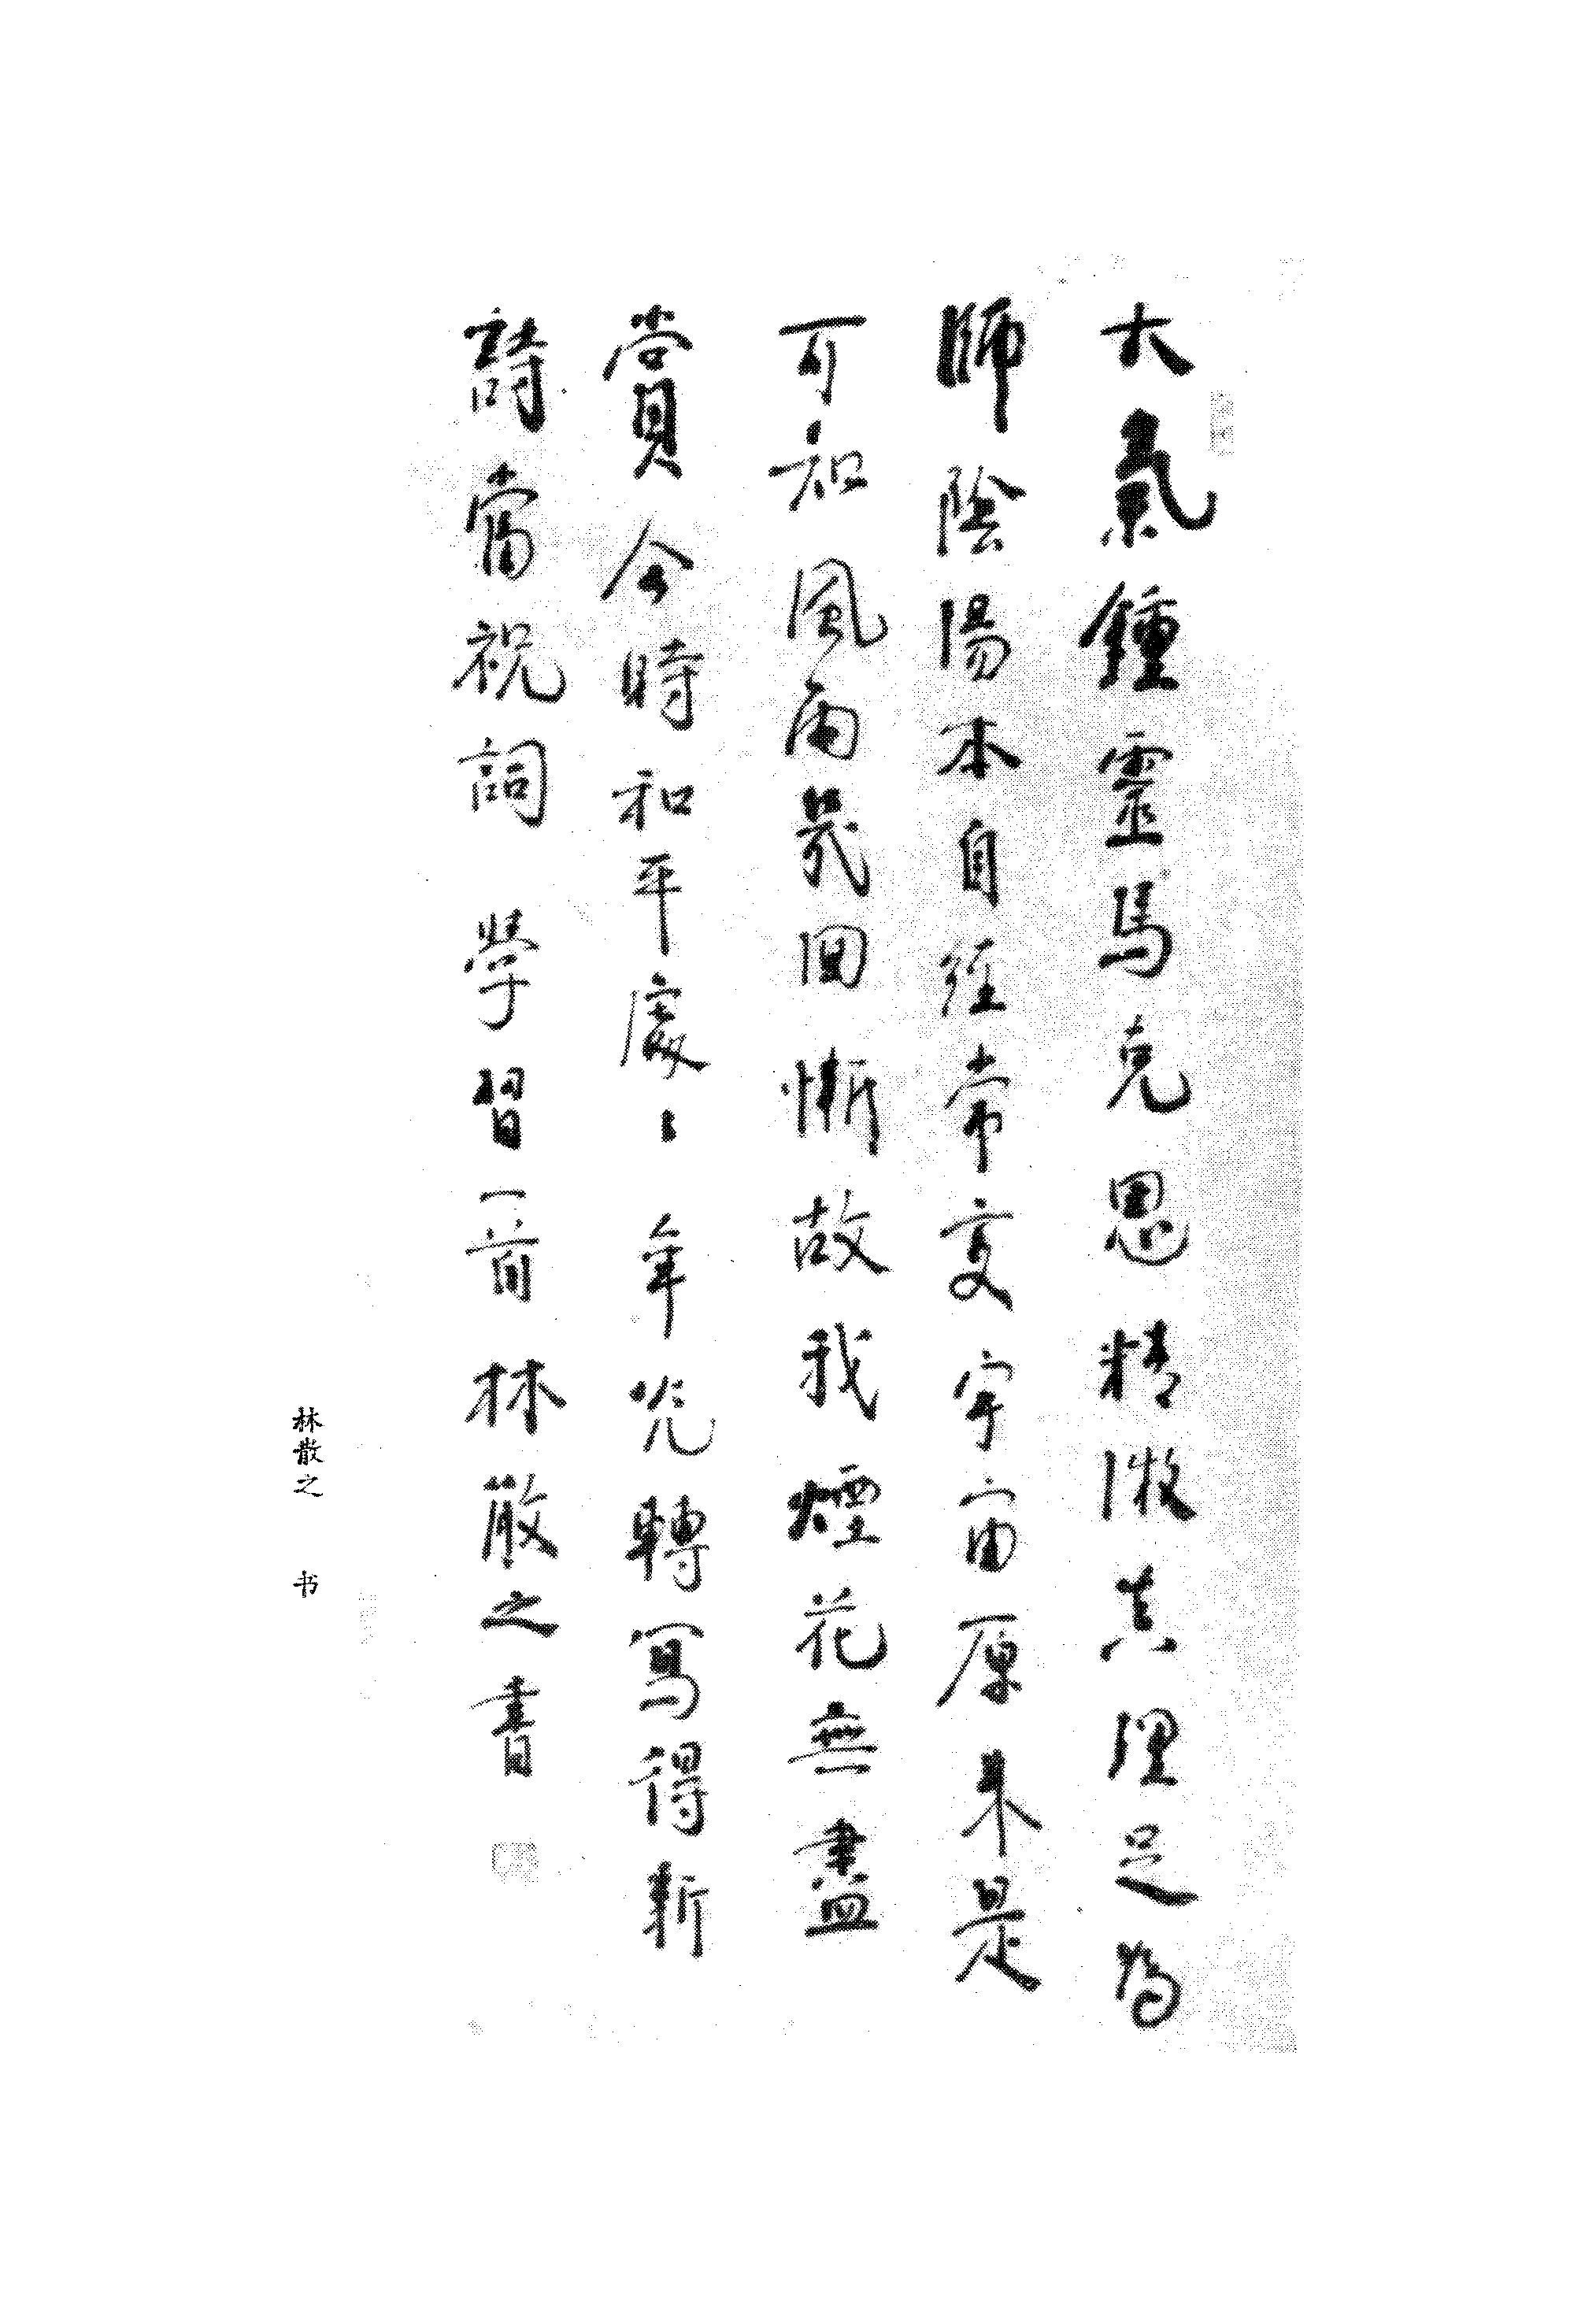 大氣鍾靈馬克思精微真理足為
師陰陽本自經常變宇宙原來是
可知風雨幾回慚故我煙花無盡
賞今時和平處〻年光轉寫得新
詩當祝詞 學習一首 林散之書
林散之 书